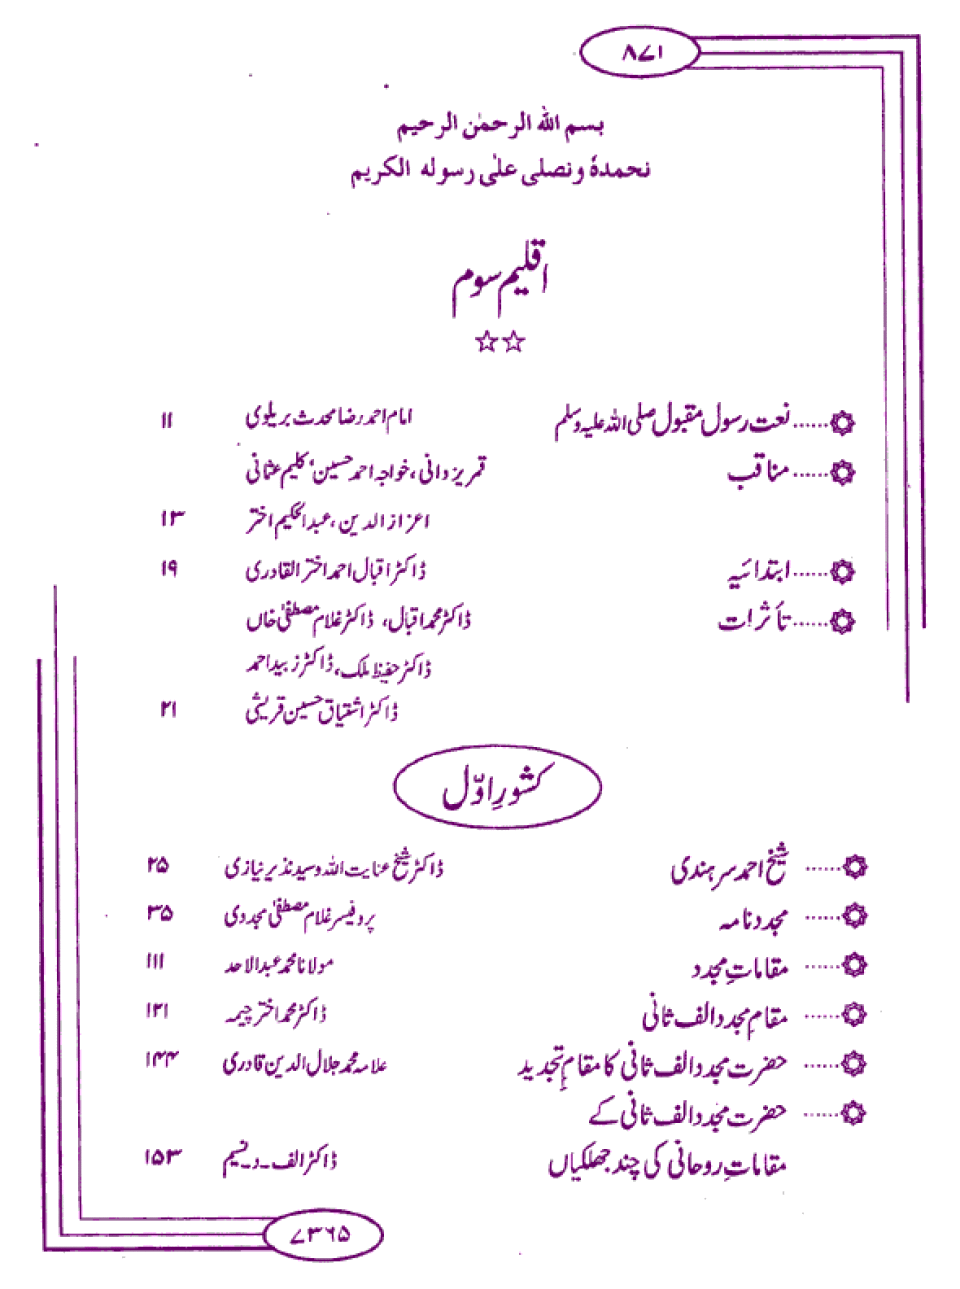 ۸۷۱
بسم الله الرحمٰن الرحیم
نحمدہٗ ونصلی علٰی رسوله الکریم
اقلیم سوم
☆☆
۞......نعت رسول مقبول صلی اللہ علیہ وسلم امام احمد رضا محدث بریلوی ۱۱
۞......مناقب قمر یزدانی، خواجہ احمد حسین، کلیم عثمانی
اعزاز الدین، عبدالحکیم اختر ۱۳
۞......ابتدائیہ ڈاکٹر اقبال احمد اختر القادری ۱۹
۞......تأثرات ڈاکٹر محمد اقبال، ڈاکٹر غلام مصطفیٰ خاں
ڈاکٹر حفیظ ملک، ڈاکٹر زبید احمد
ڈاکٹر اشتیاق حسین قریشی ۲۱
کشورِ اوّل
۞...... شیخ احمد سرہندی ڈاکٹر شیخ عنایت اللہ و سید نذیر نیازی ۲۵
۞...... مجدد نامہ پروفیسر غلام مصطفیٰ مجددی ۳۵
۞...... مقاماتِ مجدد مولانا محمد عبدالاحد ۱۱۱
۞...... مقامِ مجدد الف ثانی ڈاکٹر محمد اختر چیمہ ۱۲۱
۞...... حضرت مجدد الف ثانی کا مقامِ تجدید علامہ محمد جلال الدین قادری ۱۴۴
۞...... حضرت مجدد الف ثانی کے
مقاماتِ روحانی کی چند جھلکیاں ڈاکٹر الف۔د۔نسیم ۱۵۳
۷۳۶۵